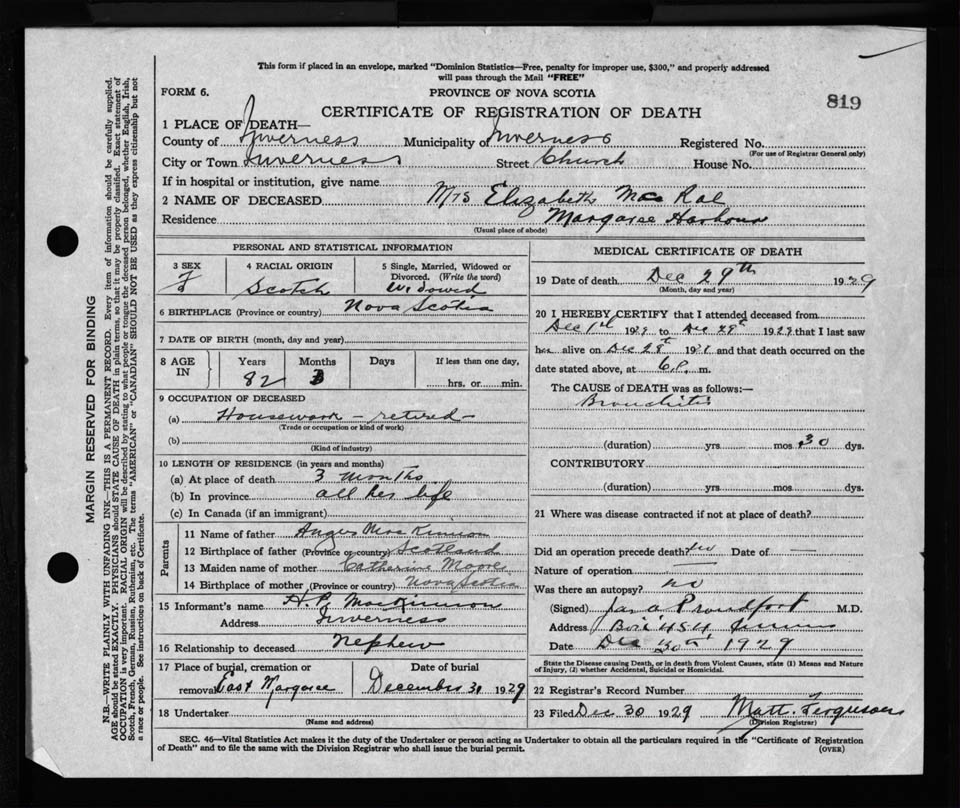 This form if placed in an envelope, marked "Dominion Statistics—Free, penalty for improper use, $300," and properly addressed
will pass through the Mail "FREE"
FORM 6. PROVINCE OF NOVA SCOTIA
819
CERTIFICATE OF REGISTRATION OF DEATH
1 PLACE OF DEATH—
County of Inverness Municipality of Inverness Registered No.
(For use of Registrar General only)
City or Town Inverness Street Church House No.
If in hospital or institution, give name
2 NAME OF DECEASED Mrs Elizabeth Mac Rae
Residence Margaree Harbour
(Usual place of abode)
PERSONAL AND STATISTICAL INFORMATION
3 SEX 4 RACIAL ORIGIN 5 Single, Married, Widowed or
Divorced. (Write the word)
F Scotch Widowed
6 BIRTHPLACE (Province or country) Nova Scotia
7 DATE OF BIRTH (month, day and year)
8 AGE IN Years Months Days If less than one day,
82 3 hrs. or min.
9 OCCUPATION OF DECEASED
(a) Housework — retired —
(Trade or occupation or kind of work)
(b)
(Kind of industry)
10 LENGTH OF RESIDENCE (in years and months)
(a) At place of death 3 months
(b) In province all her life
(c) In Canada (if an immigrant)
Parents
11 Name of father Angus MacKinnon
12 Birthplace of father (Province or country) Scotland
13 Maiden name of mother Catherine Moore
14 Birthplace of mother (Province or country) Nova Scotia
15 Informant's name A. P. MacKinnon
Address Inverness
16 Relationship to deceased Nephew
17 Place of burial, cremation or Date of burial
removal East Margaree December 31 1929
18 Undertaker
(Name and address)
MEDICAL CERTIFICATE OF DEATH
19 Date of death Dec 29th 1929
(Month, day and year)
20 I HEREBY CERTIFY that I attended deceased from
Dec 1st 1929 to Dec 28th 1929 that I last saw
her alive on Dec 28th and that death occurred on the
date stated above, at 6 P. m.
The CAUSE OF DEATH was as follows:—
Bronchitis
(duration) yrs mos 30 dys.
CONTRIBUTORY
(duration) yrs mos dys.
21 Where was disease contracted if not at place of death?
Did an operation precede death? no Date of —
Nature of operation —
Was there an autopsy? no
(Signed) Jas A Proudfoot M.D.
Address Box 454
Date Dec 30th 1929
State the Disease causing Death, or in death from Violent Causes, state (1) Means and Nature
of Injury, (2) whether Accidental, Suicidal or Homicidal.
22 Registrar's Record Number
23 Filed Dec 30 1929 Matt. Ferguson
(Division Registrar)
SEC. 46—Vital Statistics Act makes it the duty of the Undertaker or person acting as Undertaker to obtain all the particulars required in the "Certificate of Registration
of Death" and to file the same with the Division Registrar who shall issue the burial permit.
(OVER)
MARGIN RESERVED FOR BINDING
N.B.—WRITE PLAINLY WITH UNFADING INK—THIS IS A PERMANENT RECORD. Every item of information should be carefully supplied.
AGE should be stated EXACTLY. PHYSICIANS should STATE CAUSE OF DEATH in plain terms, so that it may be properly classified. Exact statement of
OCCUPATION is very important. RACIAL ORIGIN will be described by stating to what people or tongue the deceased person belonged, whether English, Irish,
Scotch, French, German, Russian, Ruthenian, etc. The terms "AMERICAN" or "CANADIAN" SHOULD NOT BE USED as they express citizenship but not
a race or people. See instructions on back of Certificate.